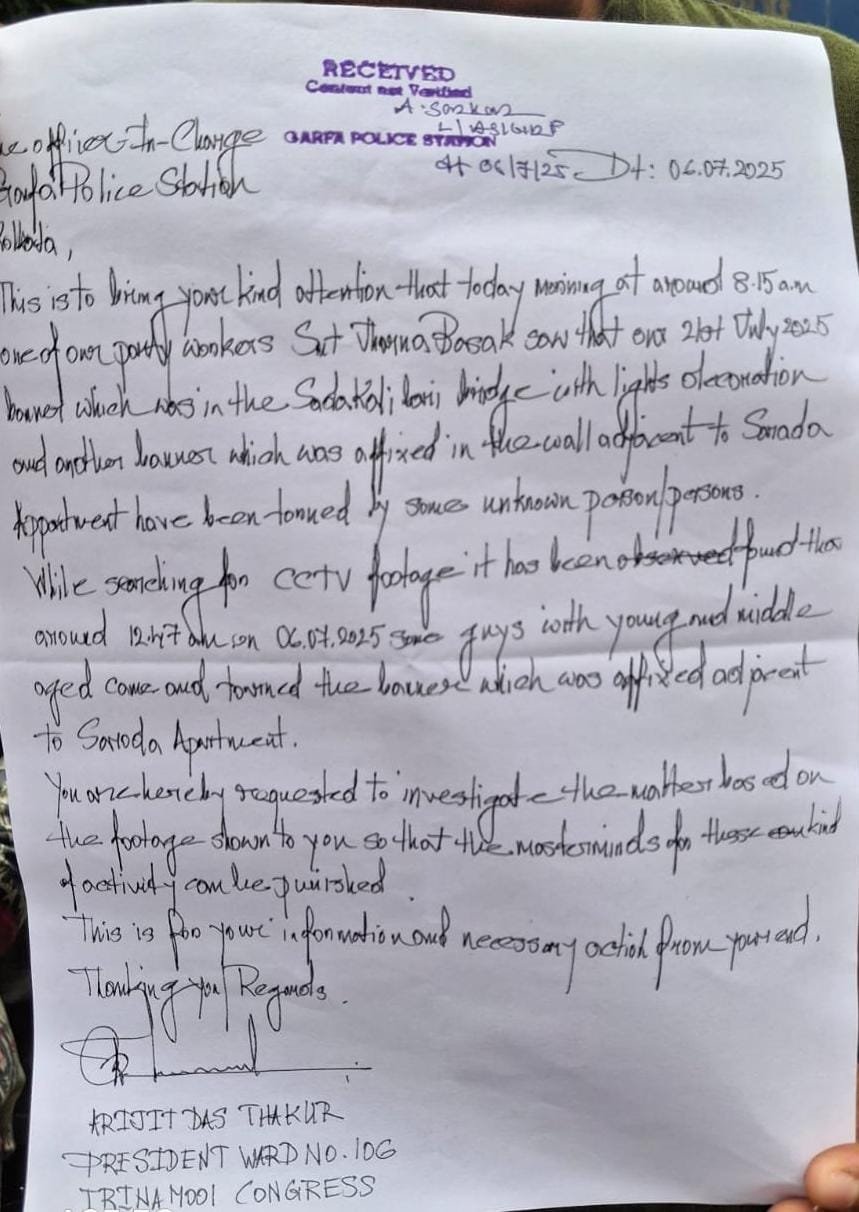 RECEIVED
Content not Verified
A. Sarkar
GARFA POLICE STATION
06/7/25
Dt: 06.07.2025
officer-In-Charge
Police Station
This is to bring your kind attention that today morining at around 8.15 a.m
one of our party workers Smt Basak saw that our 21st July 2025
banner which was in the Sadakali bari bridge with lights decoration
and another banner which was affixed in the wall adjacent to Sarada
Appartment have been torned by some unknown person/persons.
While searching for CCTV footage it has been found tha
around 12.47 am on 06.07.2025 some guys with young and middle
aged come and torned the banner which was affixed adjacent
to Saroda Apartment.
You are hereby requested to investigate the matter based on
the footage shown to you so that the masterminds for these kind
of activity can be punished.
This is for your information and necessary action from your end.
Thanking you/Regards.
ARIJIT DAS THAKUR
PRESIDENT WARD NO. 106
TRINAMOOL CONGRESS